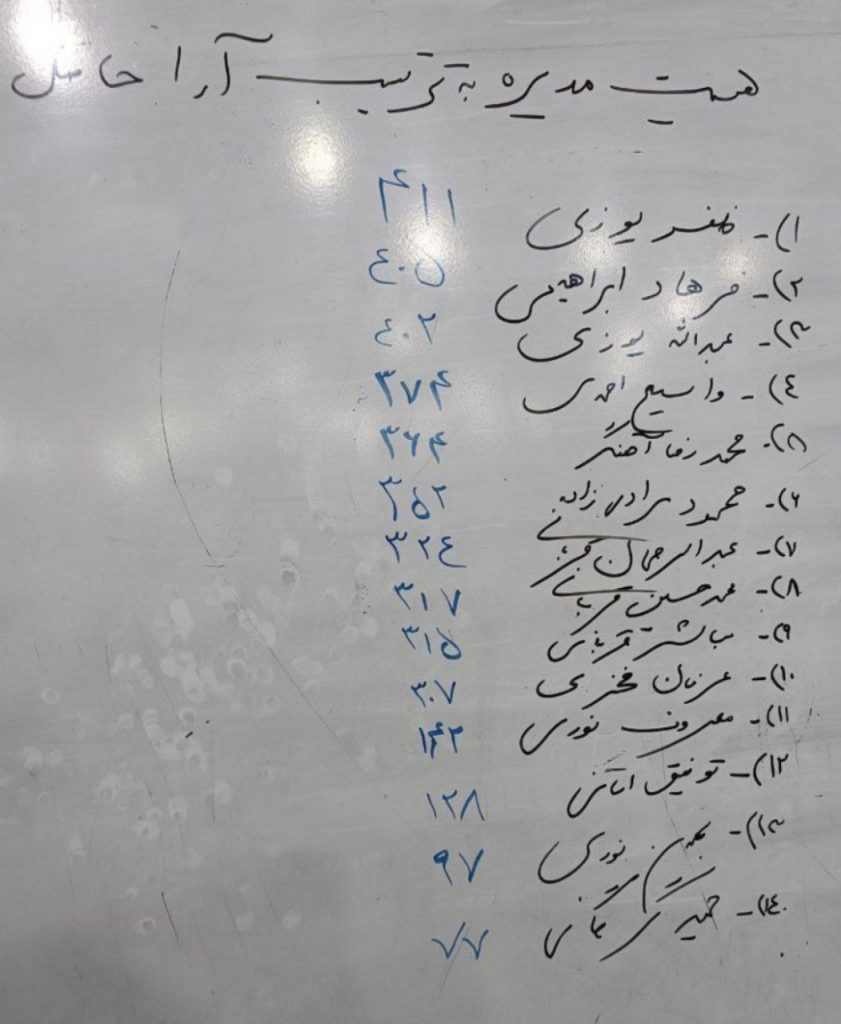 هیئت مدیره به ترتیب آرا حاصل
۱)- یوزی ۴۱۱
۲)- فرهاد ابراهیمی ٤۰۵
۳)- عبدالله یوزی ٤۰۲
٤)- واسیع احمدی ۳۷۴
۵)- محمد رضا آهنگر ۳۶۴
۶)- محمود مرادی زاده ۳۵۲
۷)- عبدالرحمان قربانی ۳۲٤
۸)- محمد حسین قربانی ۳۱۷
۹)- قربانی ۳۱۵
۱۰)- فخری ۳۰۷
۱۱)- معروف نوری ۱۴۲
۱۲)- توفیق امانی ۱۲۸
۱۳)- بهمن نوری ۹۷
۱٤)- حمید ۷۷